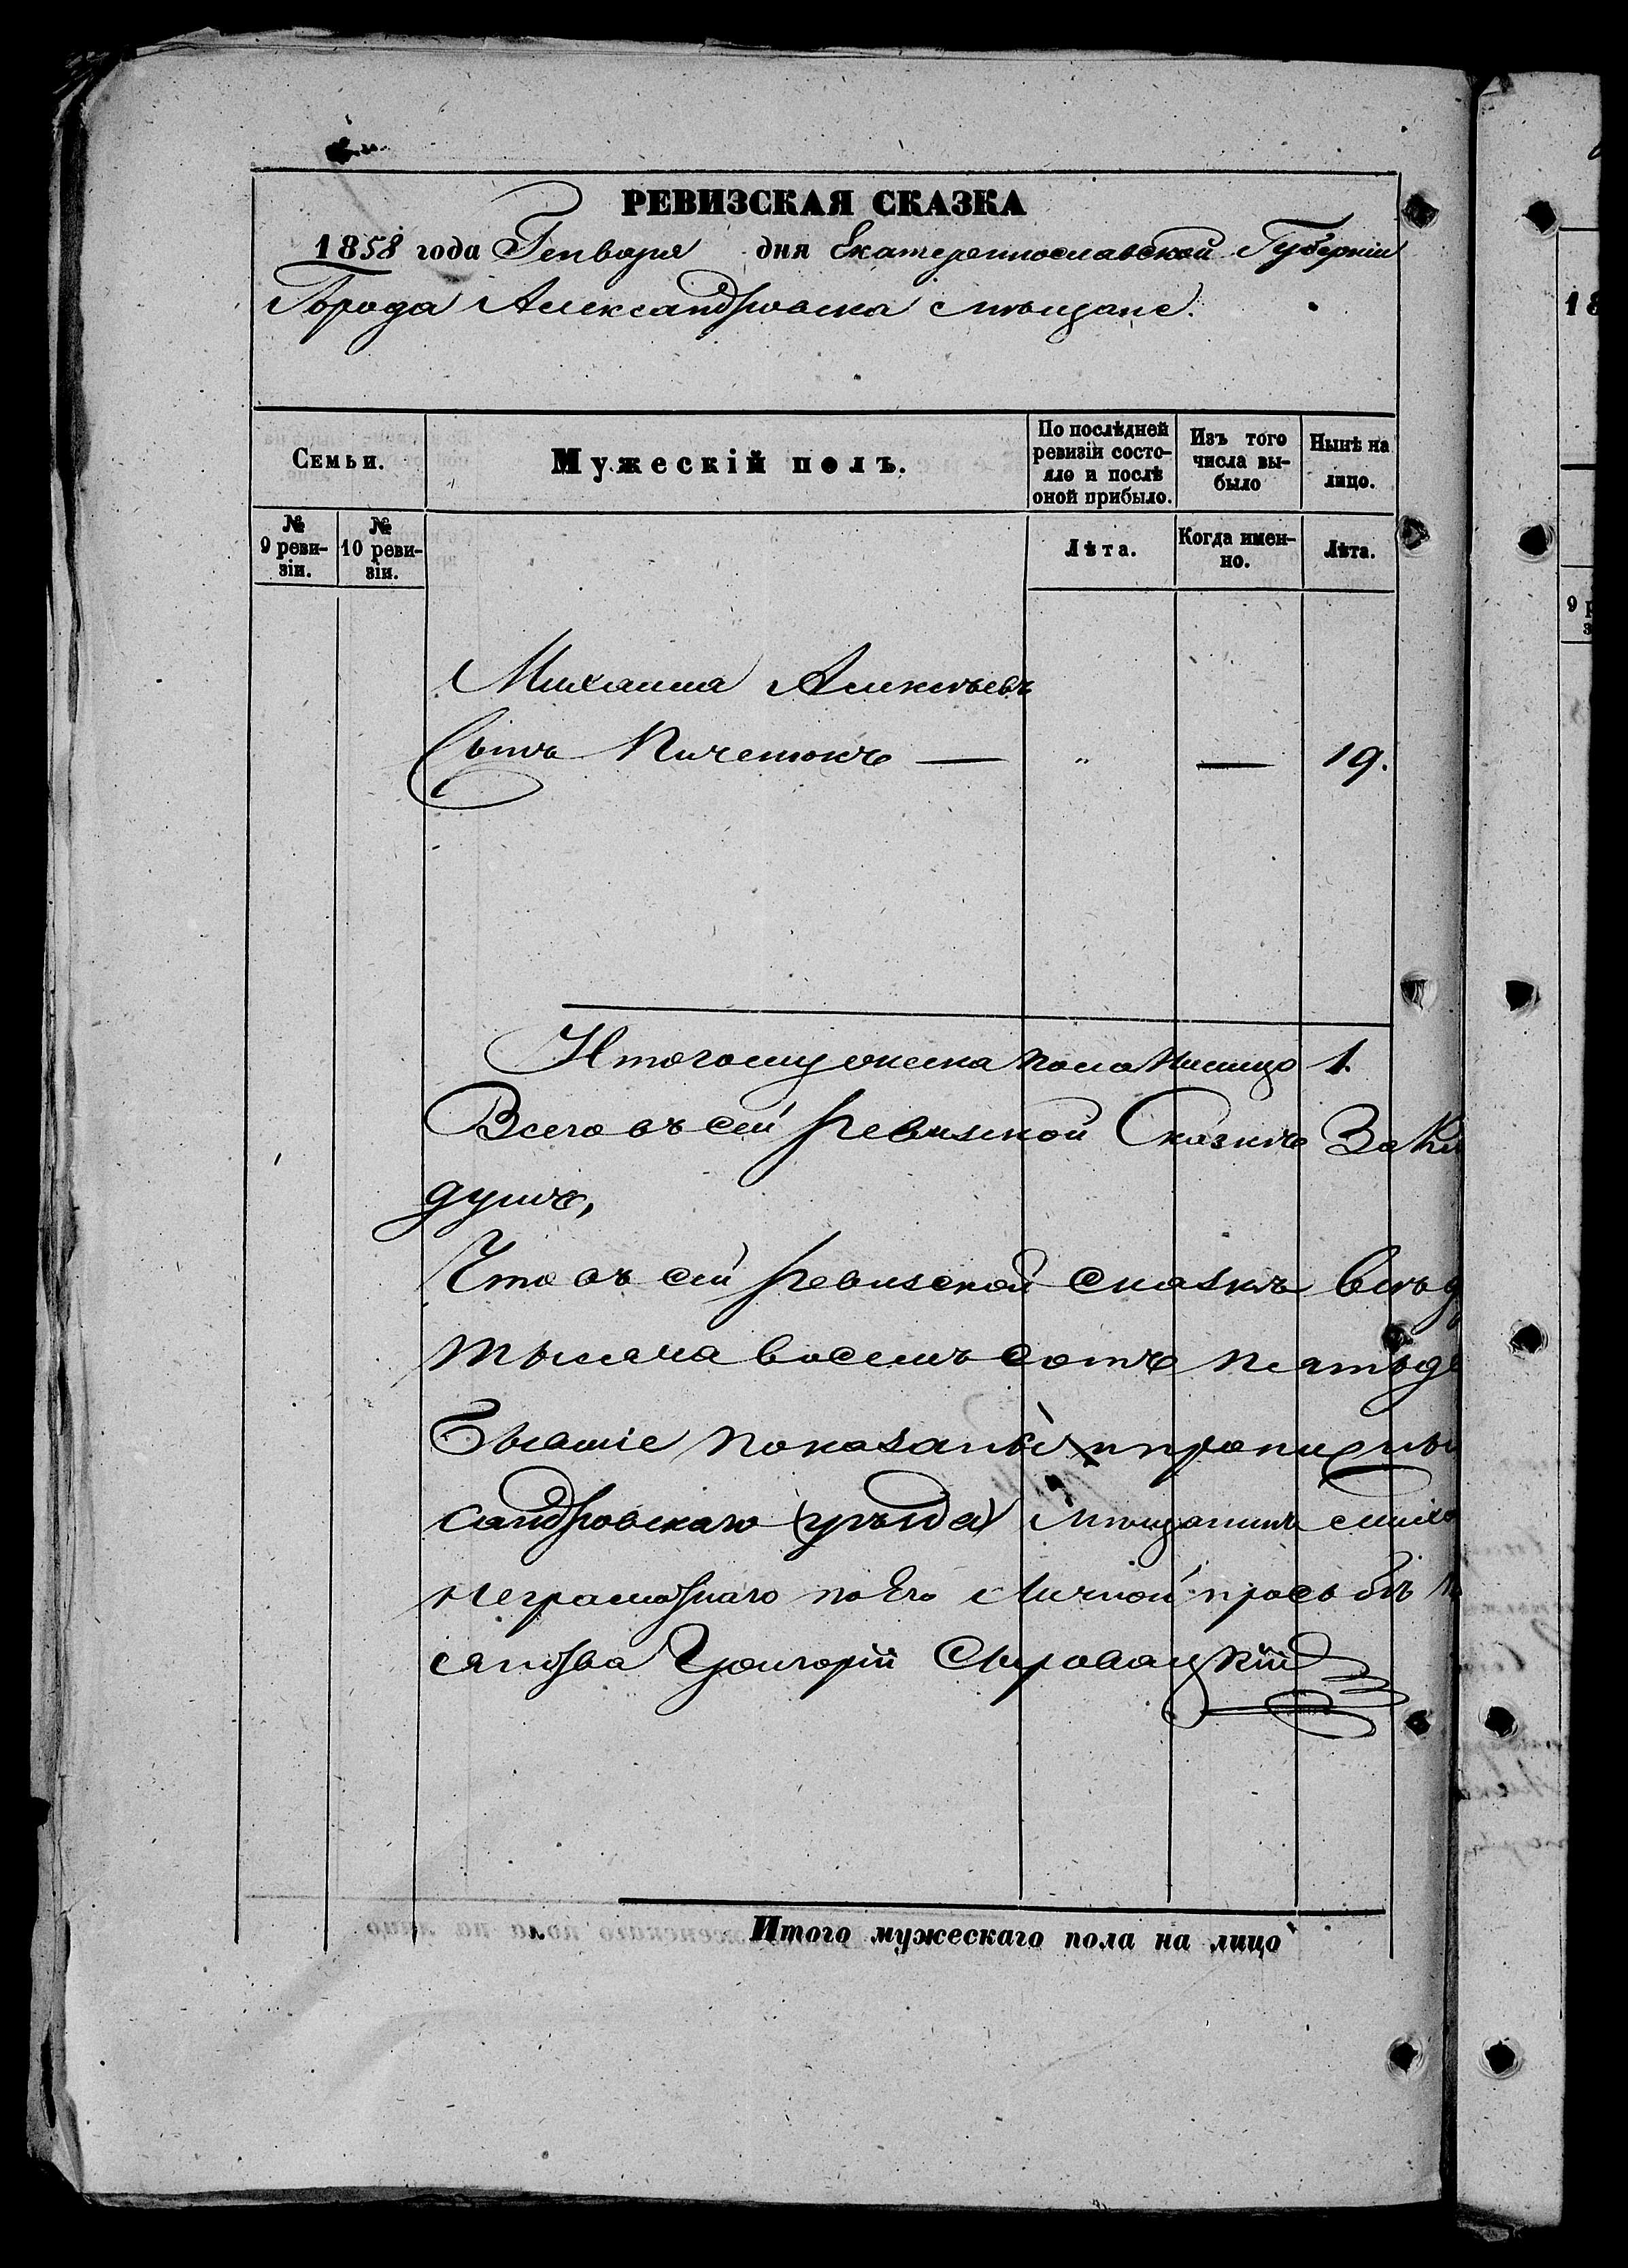 РЕВИЗСКАЯ СКАЗКА
1858 года Генваря дня Екатеринославской Губерніи
Города Александровска мѣщане.
Семьи.
Мужескій полъ.
По послѣдней ревизіи состояло и послѣ оной прибыло.
Изъ того числа выбыло
Нынѣ на лицо.
№ 9 ревизіи.
№ 10 ревизіи.
Лѣта.
Когда именно.
Лѣта.
Михаила Алексѣевъ
Сынъ — „ — 19.
Итого мужеска пола налицо 1.
Всего въ сей ревизской Сказкѣ
душъ,
Что въ сей ревизской сказкѣ всѣ
тысяча восемь сотъ пятьде
Бывшіе показаны и
сандровскаго мѣщанинъ
неграмотнаго по Его личной прозьбѣ
Григорій
Итого мужескаго пола на лицо
18
9 р
з